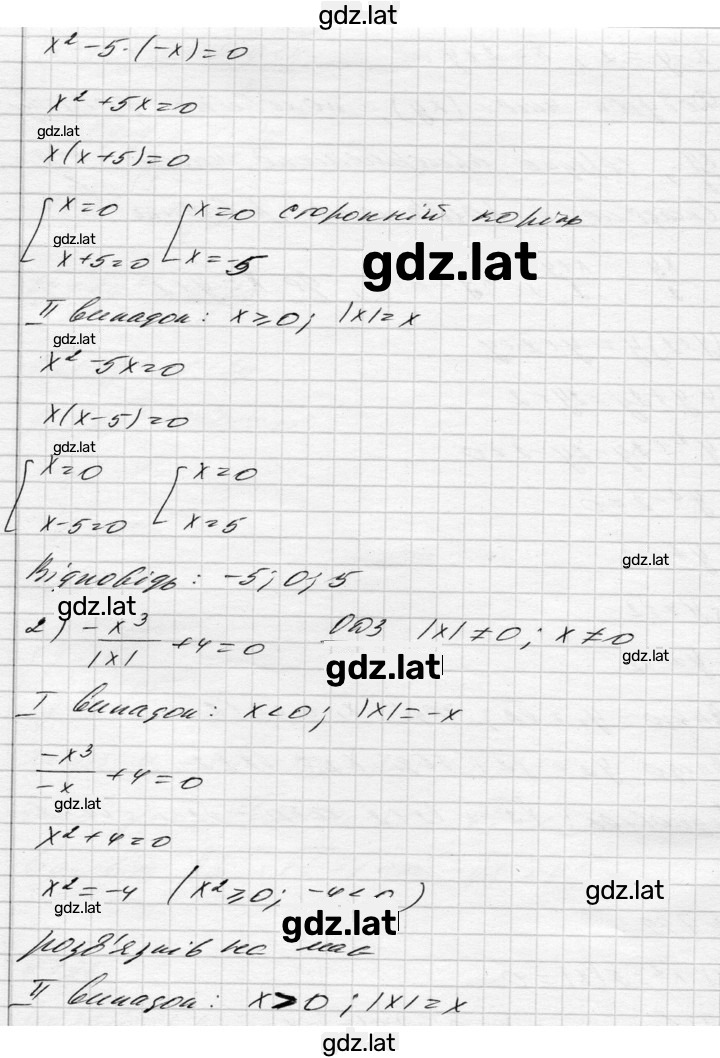 gdz.lat
x² - 5·(-x) = 0
x² + 5x = 0
gdz.lat
x(x+5) = 0
[ x = 0 [ x = 0 сторонній корінь
gdz.lat
x+5 = 0 x = -5
gdz.lat
II випадок: x ≥ 0; |x| = x
gdz.lat
x² - 5x = 0
x(x-5) = 0
gdz.lat
[ x = 0 [ x = 0
x-5 = 0 x = 5
gdz.lat
Відповідь: -5; 0; 5
gdz.lat
2) -x³/|x| + 4 = 0 ОДЗ |x| ≠ 0; x ≠ 0
gdz.lat
gdz.lat
I випадок: x < 0; |x| = -x
-x³/-x + 4 = 0
gdz.lat
x² + 4 = 0
x² = -4 (x² ≥ 0; -4 < 0)
gdz.lat
gdz.lat
gdz.lat
розв'язків не має
II випадок: x > 0; |x| = x
gdz.lat